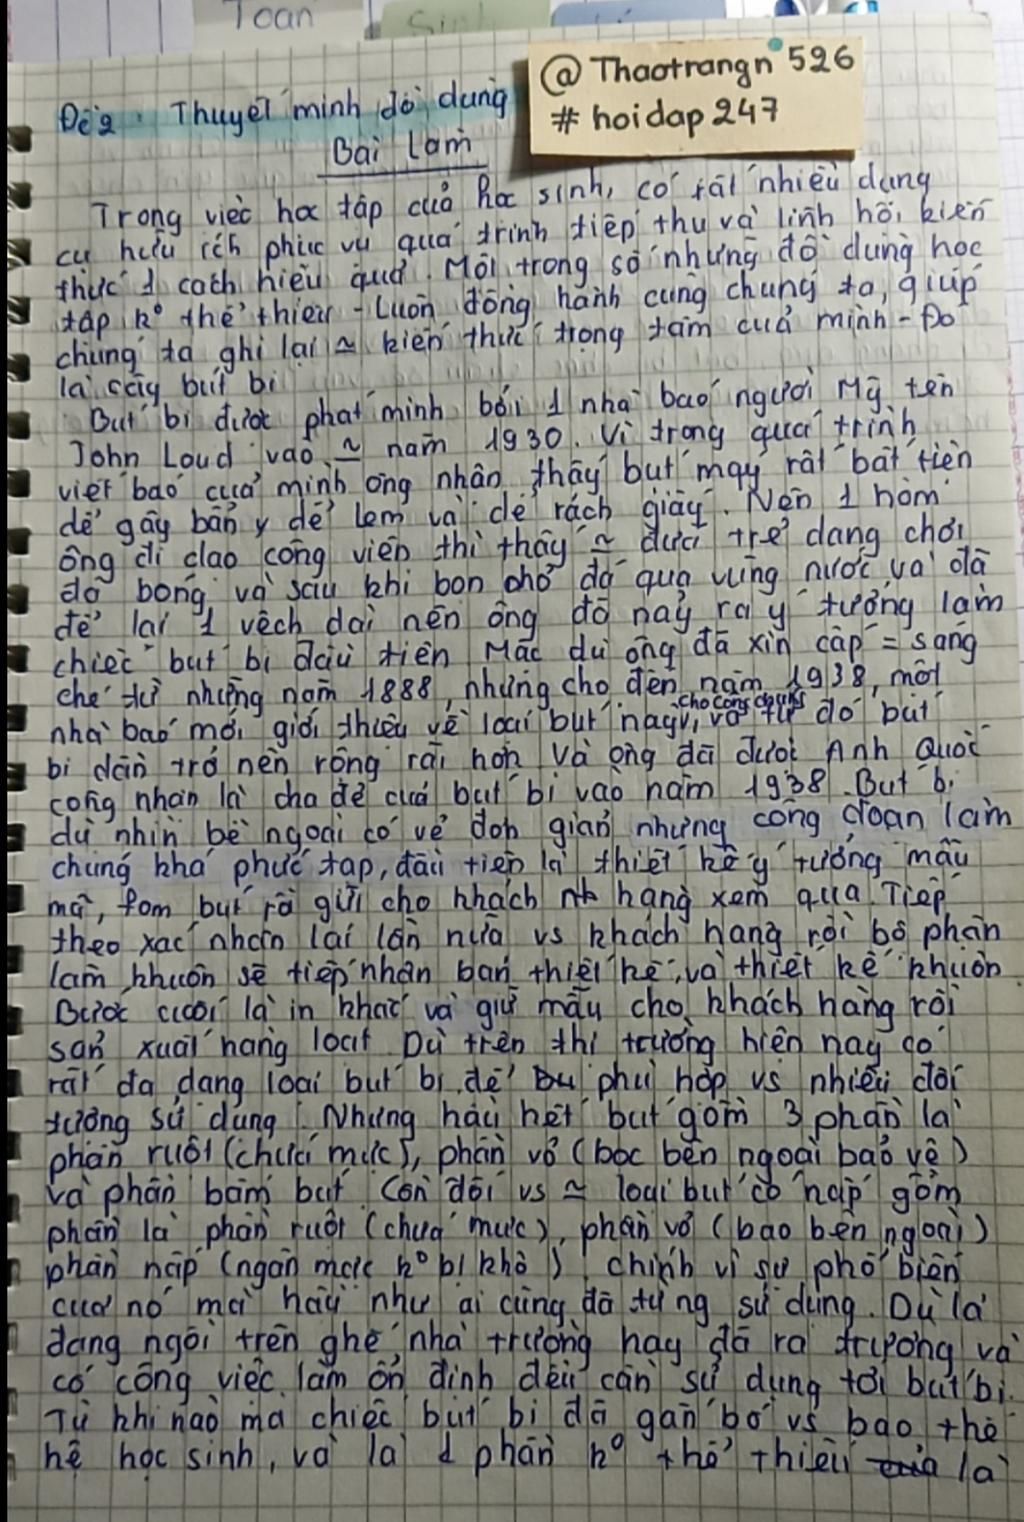 Toan
Sinh
@ Thaotrangn 526
# hoidap 247
Đề 2: Thuyết minh đồ dùng
Bài làm
Trong việc học tập của học sinh, có rất nhiều dụng
cụ hữu ích phục vụ quá trình tiếp thu và lĩnh hội kiến
thức 1 cách hiệu quả. Một trong số những đồ dùng học
tập k° thể thiếu - Luôn đồng hành cùng chúng ta, giúp
chúng ta ghi lại ~ kiến thức trọng tâm của mình - Đó
là cây bút bi
Bút bi được phát minh bởi 1 nhà báo người Mỹ tên
John Loud vào ~ năm 1930. Vì trong quá trình
viết báo của mình ông nhận thấy bút máy rất bất tiện
dễ gây bẩn y dễ lem và dễ rách giấy. Nên 1 hôm
ông đi dạo công viên thì thấy ~ đứa trẻ đang chơi
đá bóng và sau khi bọn chở đá qua vũng nước và đã
để lại 1 vệch dài nên ông đó nảy ra ý tưởng làm
chiếc bút bi đầu tiên Mặc dù ông đã xin cấp = sáng
chế từ những năm 1888, nhưng cho đến năm 1938, một
nhà báo mới giới thiệu về loại bút này cho công chúng, và từ đó bút
bi dần trở nên rộng rãi hơn Và ông đã được Anh Quốc
công nhận là cha đẻ của bút bi vào năm 1938. Bút bi
dù nhìn bề ngoài có vẻ đơn giản nhưng công đoạn làm
chúng khá phức tạp, đầu tiên là thiết kế ý tưởng mẫu
mã, fom bút rồi gửi cho khách hàng xem qua. Tiếp
theo xác nhận lại lần nữa vs khách hàng rồi bộ phận
làm khuôn sẽ tiếp nhận bản thiết kế, và thiết kế khuôn
Bước cuối là in khắc và giữ mẫu cho khách hàng rồi
sản xuất hàng loạt Dù trên thị trường hiện nay có
rất đa dạng loại bút bi để phù hợp vs nhiều đối
tượng sử dụng. Nhưng hầu hết bút gồm 3 phần là
phần ruột (chứa mực), phần vỏ (bọc bên ngoài bảo vệ)
và phần bấm bút Còn đối vs ~ loại bút có nắp gồm
phần là phần ruột (chứa mực), phần vỏ (bao bên ngoài)
phần nắp (ngăn mực k° bị khô). chính vì sự phổ biến
của nó mà hầu như ai cũng đã từng sử dụng. Dù là
đang ngồi trên ghế nhà trường hay đã ra trường và
có công việc làm ổn định đều cần sử dụng tới bút bi.
Từ khi nào mà chiếc bút bi đã gắn bó vs bao thế
hệ học sinh, và là 1 phần k° thể thiếu là